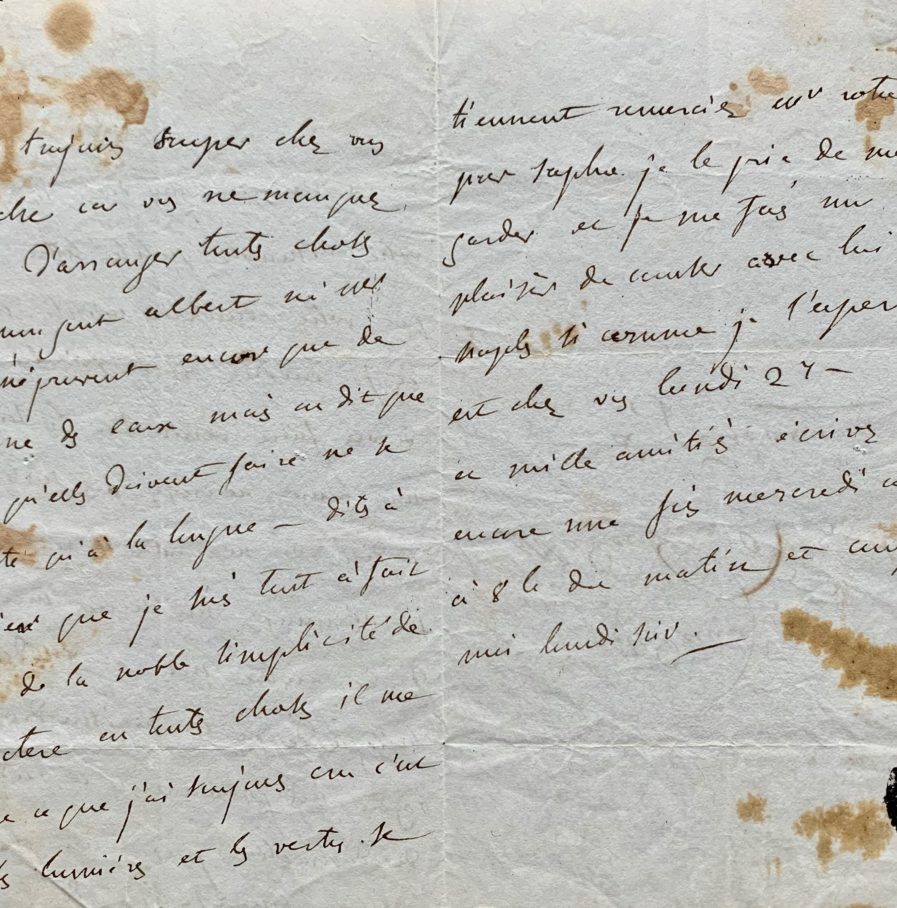 toujours souper chez vous
che car vous ne manquez
d'arranger toutes choses
albert ni
n'éprouvent encore que de
ne des eaux mais on dit que
qu'elles doivent faire ne se
té qu'à la longue — dites à
que je suis tout à fait
de la noble simplicité de
ctère en toutes choses il me
ce que j'ai toujours cru c'est
lumières et les vertus se
tiennent remerciez votre
pour sapho. je le prie de me
garder et je me fais un
plaisir de causer avec lui
naples si comme je l'esper
est chez vous lundi 27 —
et mille amitiés écrivez
encore une fois mercredi
à 8 h du matin et
moi lundi soir. —